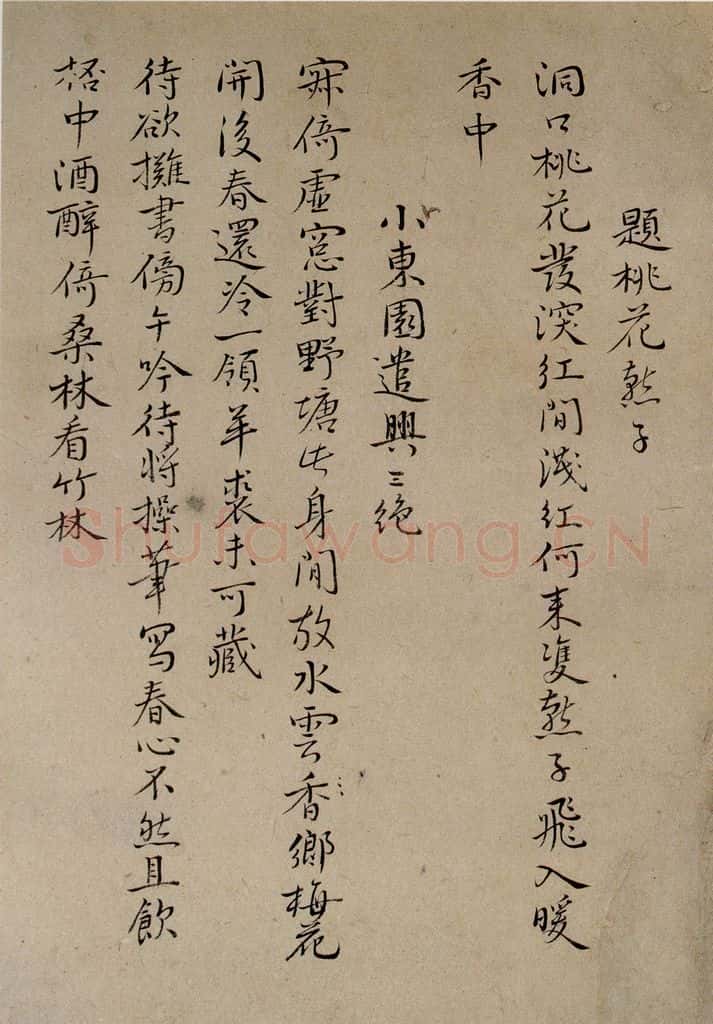 題桃花燕子
洞口桃花發深紅間淺紅何來雙燕子飛入暖
香中
小東園遣興三絶
寂倚虛窓對野塘此身閒放水雲香鄉梅花
開後春還冷一領羊裘未可藏
待欲攤書傍午吟待將操筆寫春心不然且飲
桮中酒醉倚桑林看竹林
Shufawang.CN